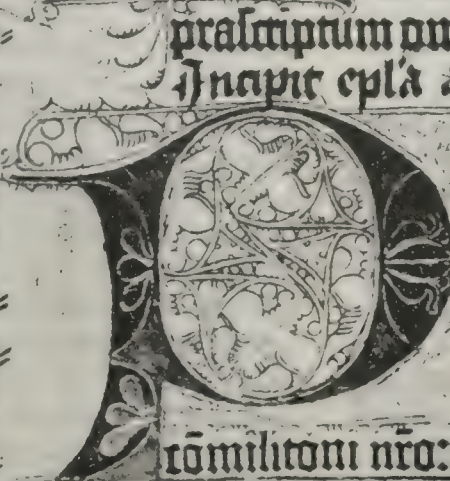 prascriptum
Incipit epl'a
P
cōmilitoni nr̄o: